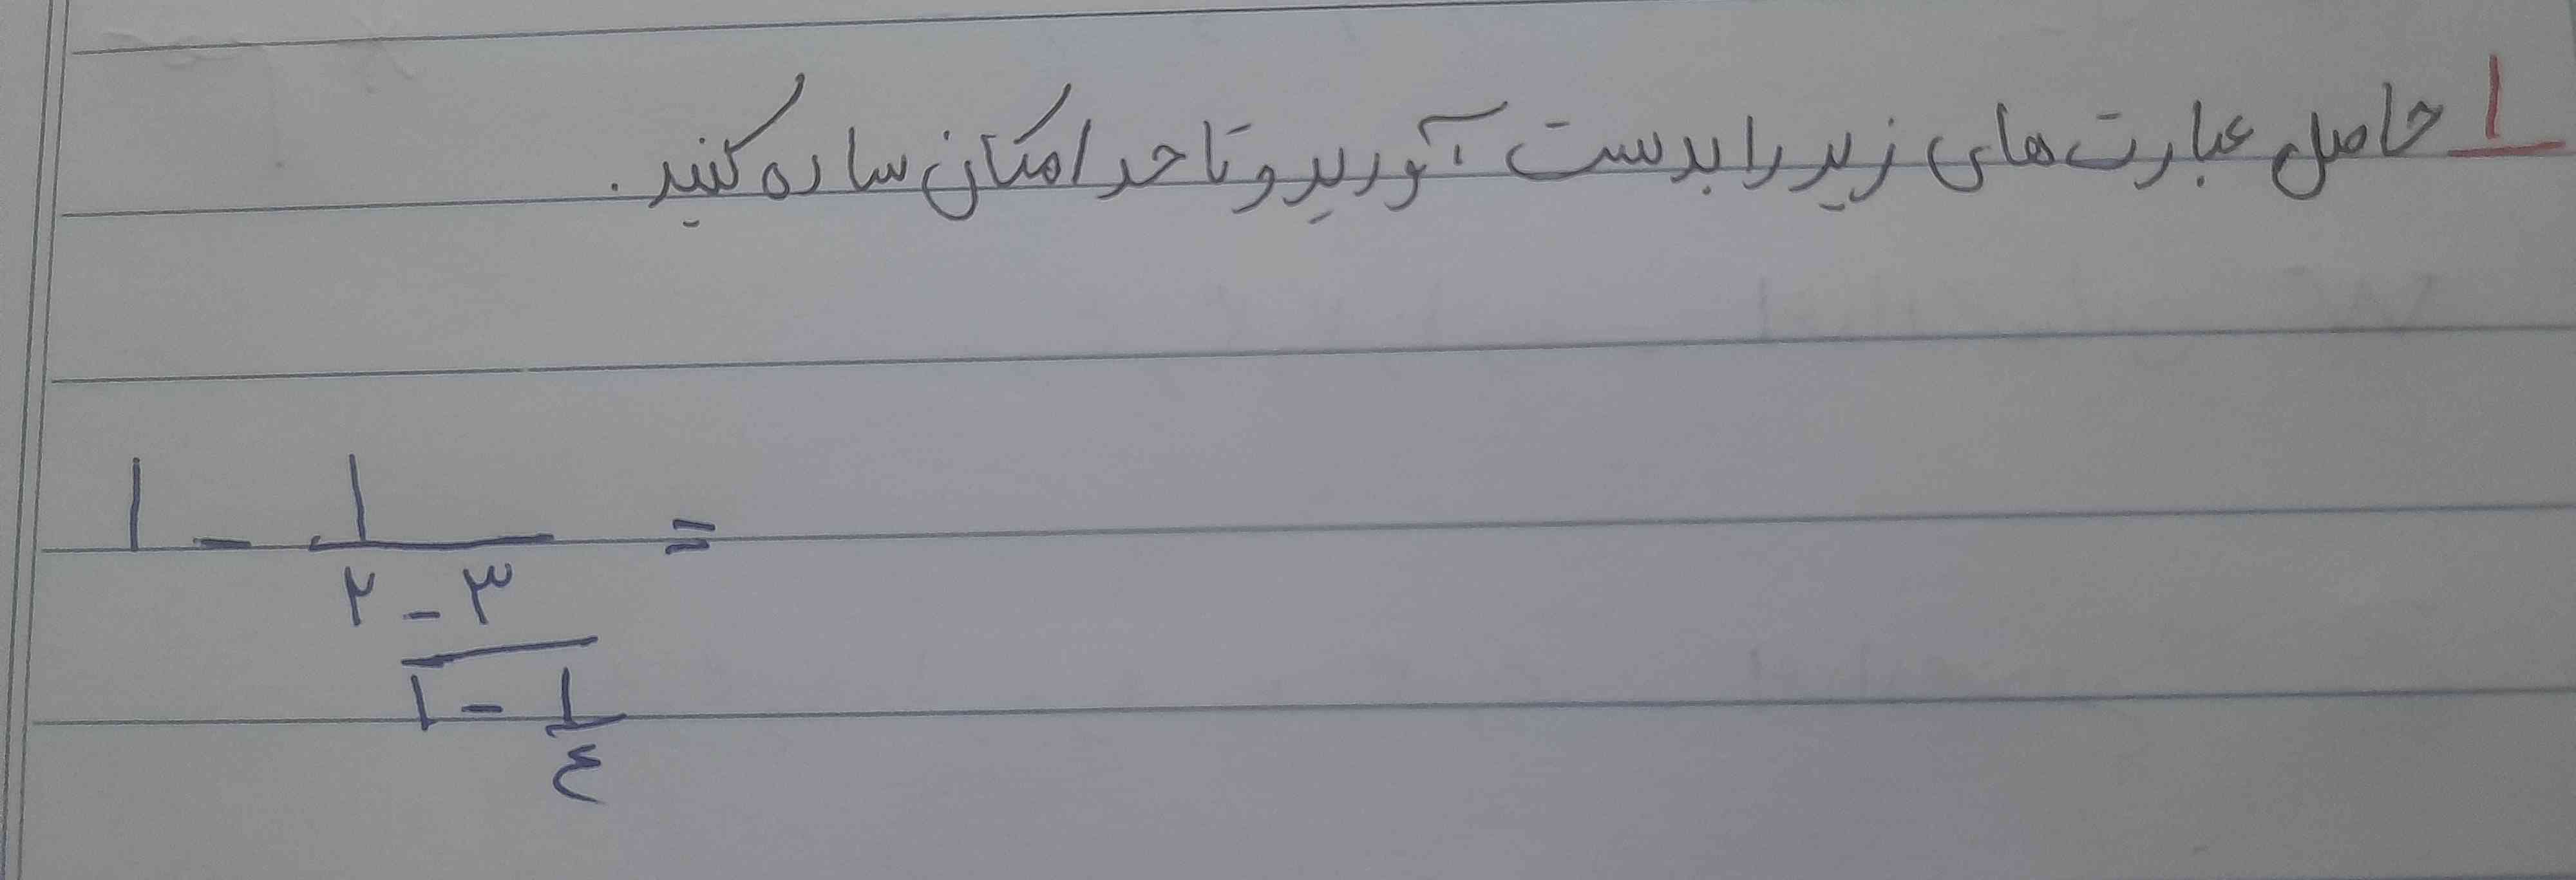 ۱ حاصل عبارت‌های زیر را بدست آورید و تا حد امکان ساده کنید.
۱ - ۱ =
۲ - ۳
۱ - ۱
٤